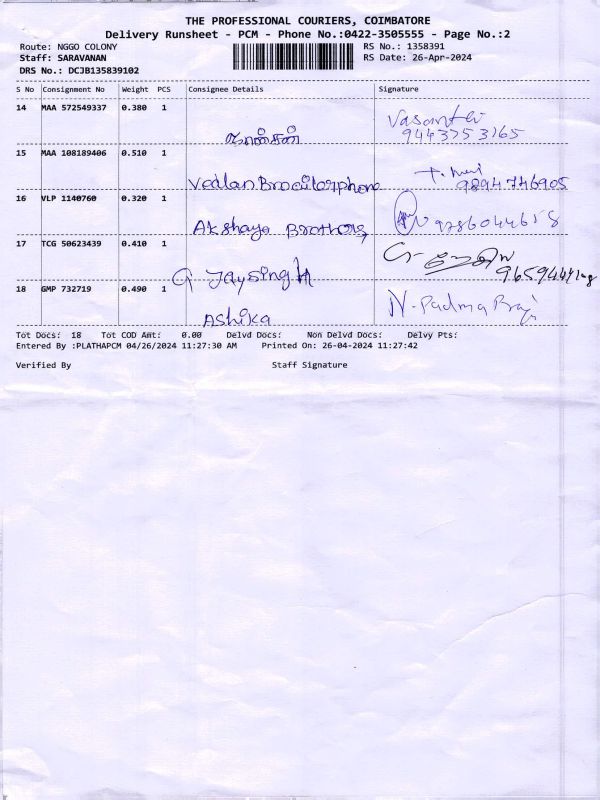 THE PROFESSIONAL COURIERS, COIMBATORE
Delivery Runsheet - PCM - Phone No.:0422-3505555 - Page No.:2
Route: NGGO COLONY RS No.: 1358391
Staff: SARAVANAN RS Date: 26-Apr-2024
DRS No.: DCJB135839102
S No Consignment No Weight PCS Consignee Details Signature
14 MAA 572549337 0.380 1 Vasanthi
9443753165
15 MAA 108189406 0.510 1
9894746905
16 VLP 1140760 0.320 1 9786044658
Akshaya Brothers
17 TCG 50623439 0.410 1
G Jaysingh
18 GMP 732719 0.490 1 N. Padma
Ashika
Tot Docs: 18 Tot COD Amt: 0.00 Delvd Docs: Non Delvd Docs: Delvy Pts:
Entered By :PLATHAPCM 04/26/2024 11:27:30 AM Printed On: 26-04-2024 11:27:42
Verified By Staff Signature